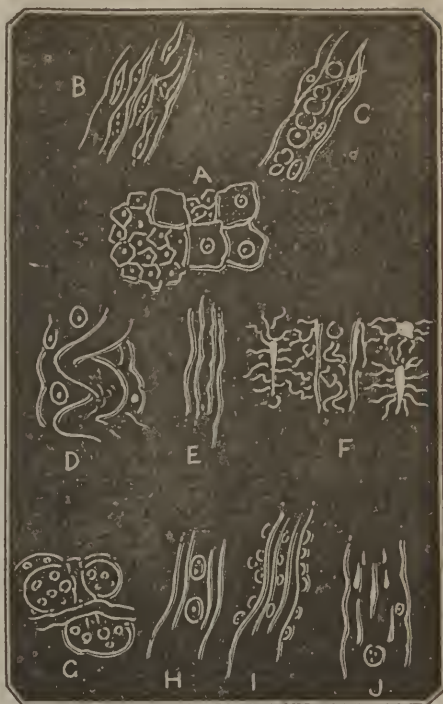 B C
A
D E F
G H I J